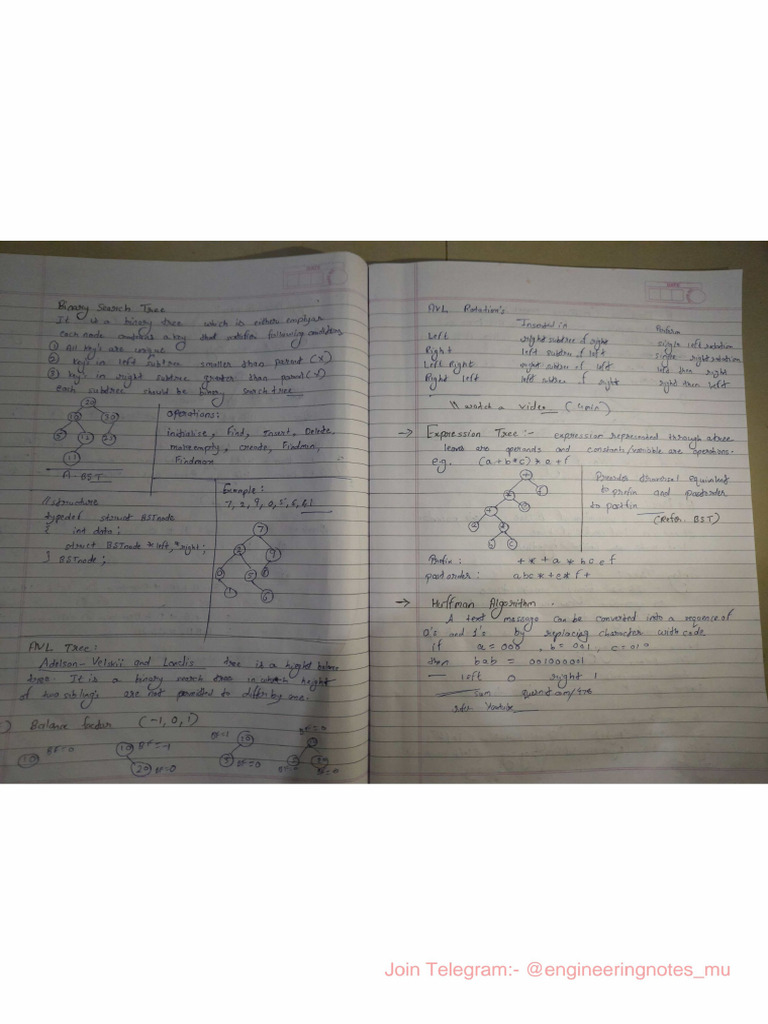 Binary Search Tree
It is a binary tree which is either empty or
each node contains a key that satisfies following conditions
① All keys are unique
② keys in left subtree smaller than parent (x)
③ keys in right subtree greater than parent (x)
each subtree should be binary search tree
A - BST
operations:
initialise, Find, Insert, Delete,
makeempty, create, Findmin,
Findmax
Example:
7, 2, 9, 0, 5, 6, 8, 1
7
2
9
0
5
8
1
6
//structure
typedef struct BSTnode
{ int data;
struct BSTnode *left, *right;
} BSTnode;
AVL Tree:
Adelson-Velskii and Landis tree is a height balance
tree. It is a binary search tree in which height
of two siblings are not permitted to differ by one.
Balance factor (-1, 0, 1)
10 BF=0
10 BF=-1
20 BF=0
BF=1 10
5 BF=0
BF=0
BF=0 BF=0
AVL Rotation's
Inserted in Perform
Left right subtree of right single left rotation
Right left subtree of left single right rotation
Left Right right subtree of left left then right
Right left left subtree of right right then left
// watch a video
→ Expression Tree:- expression represented through a tree
leaves are operands and constants/variable are operations.
eg. (a+b*c)*e+f
Preorder traversal equivalent
to prefix and postorder
to postfix
(Refer BST)
Prefix: + * + a * b c e f
postorder: abc*+e*f+
→ Huffman Algorithm.
A text message can be converted into a sequence of
0's and 1's by replacing character with code
if a=000, b=001, c=010
then bab = 001000001
— left 0 right 1
Sum
refer Youtube
Join Telegram:- @engineeringnotes_mu